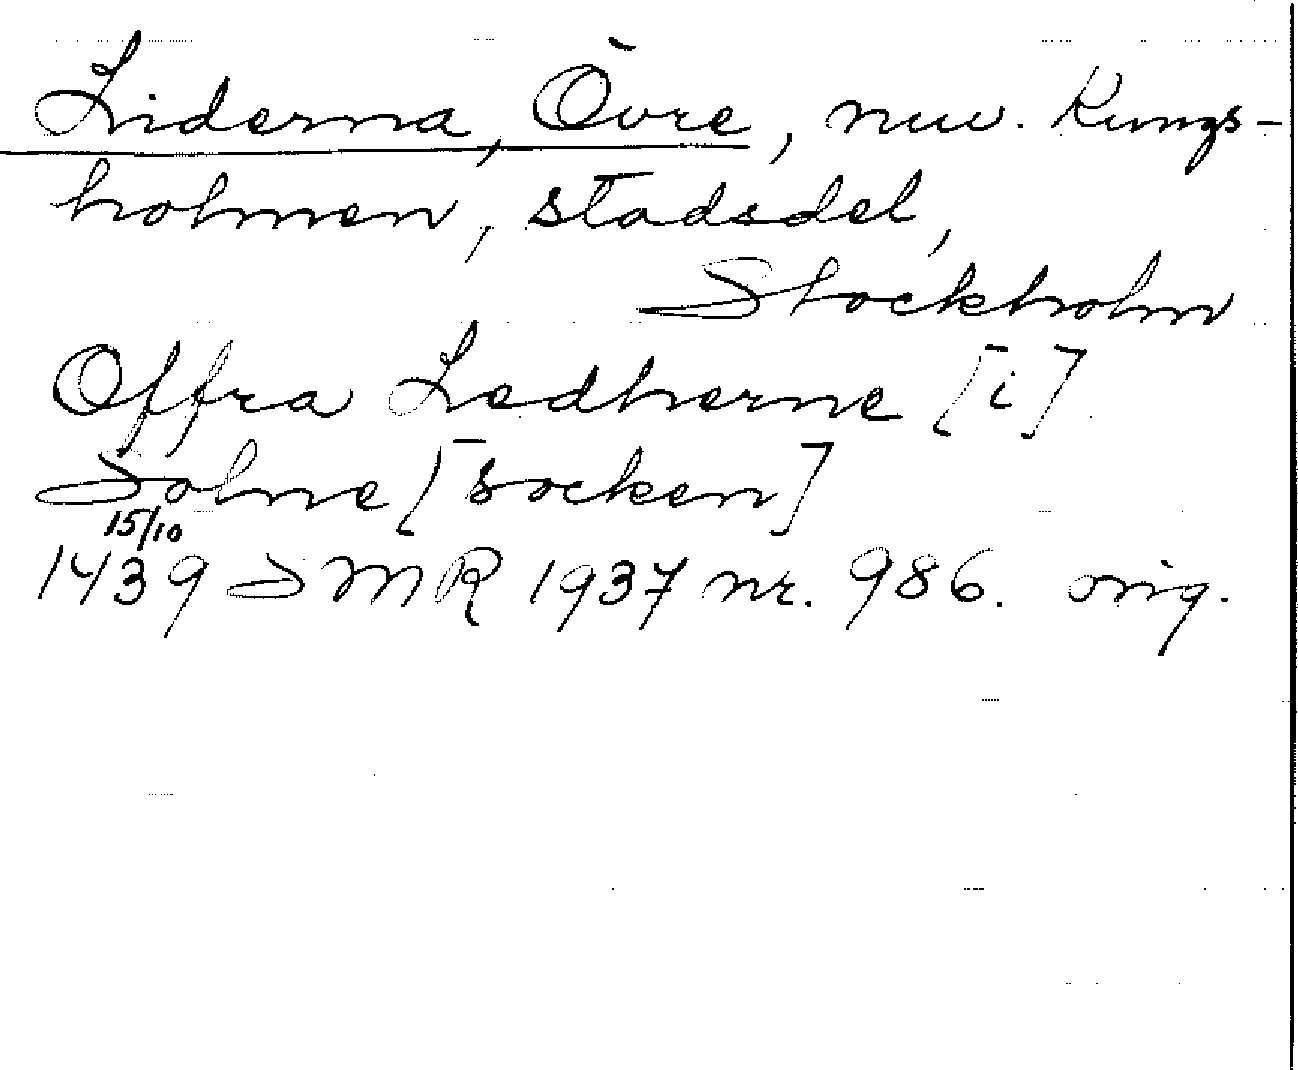 Liderna, Övre, nuv. Kungs-
holmen, stadsdel,
Stockholm
Offra Ledherne [i]
Solne [socken]
15/10
1439 SMR 1937 nr. 986. orig.